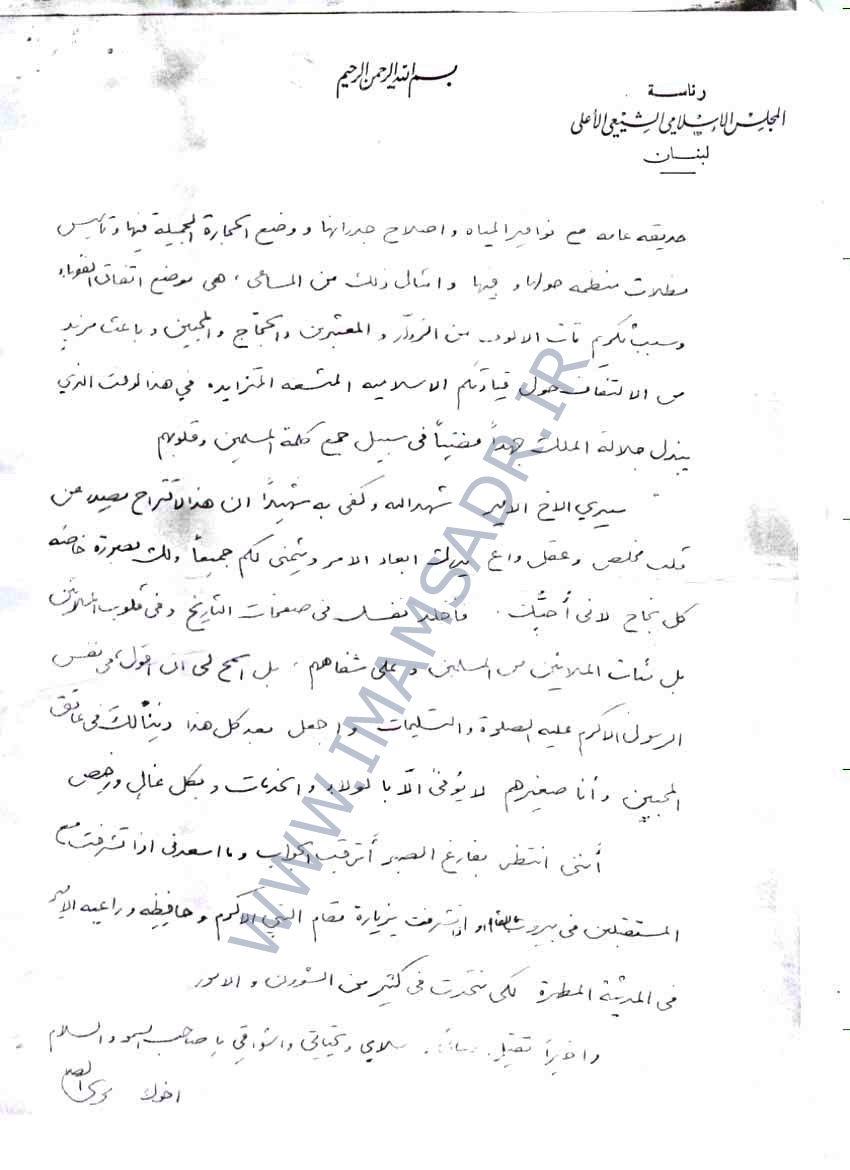 بسم الله الرحمن الرحيم
رئاسة
المجلس الإسلامي الشيعي الأعلى
لبنان
حديقه عامه مع نوافير المياه واصلاح جدرانها ووضع الحجارة الجميلة فيها وتأسيس
مظلات منظمه حولها وفيها وامثال ذلك من المساعي، هي موضع اتفاق الفقهاء
وسبب تكريم مئات الالوف من الزوّار والمعتمرين والحجّاج والمحبين وباعث مزيد
من الالتفاف حول قيادتكم الاسلاميه المتزايده في هذا الوقت الذي
يبذل جلالة الملك جهداً مضنياً في سبيل جمع كلمة المسلمين وقلوبهم
سيدي الاخ الامير شهد الله وكفى به شهيداً ان هذا الاقتراح يصدر عن
قلب مخلص وعقل واع يدرك ابعاد الامر ويتمنى لكم جميعاً ولك بصورة خاصه
كل نجاح لاني أُحبُّك. فأخلد نفسك في صفحات التاريخ وفي قلوب الملايين
بل مئات الملايين من المسلمين وعلى شفاههم، بل اسمح لي ان اقول، في نفس
الرسول الاكرم عليه الصلوة والتسليمات واجعل بعد كل هذا ديناً لك في عاتق
المحبين وأنا صغيرهم لا يُوفىٰ الّا بالولاء والخدمات وبكل غالٍ ورخيص
أنني انتظر بفارغ الصبر أترقب الجواب وما اسعدني اذا تشرفت مع
المستقبلين في بيروت او اذا تشرفت بزيارة مقام النبي الاكرم وحافظه وراعيه الامير
في المدينة المطهرة لكي نتحدث في كثير من الشؤون والامور
واخيراً تقبل سلامي وتحياتي واشواقي يا صاحب السمو والسلام
اخوك موسى الصدر
WWW.IMAMSADR.IR